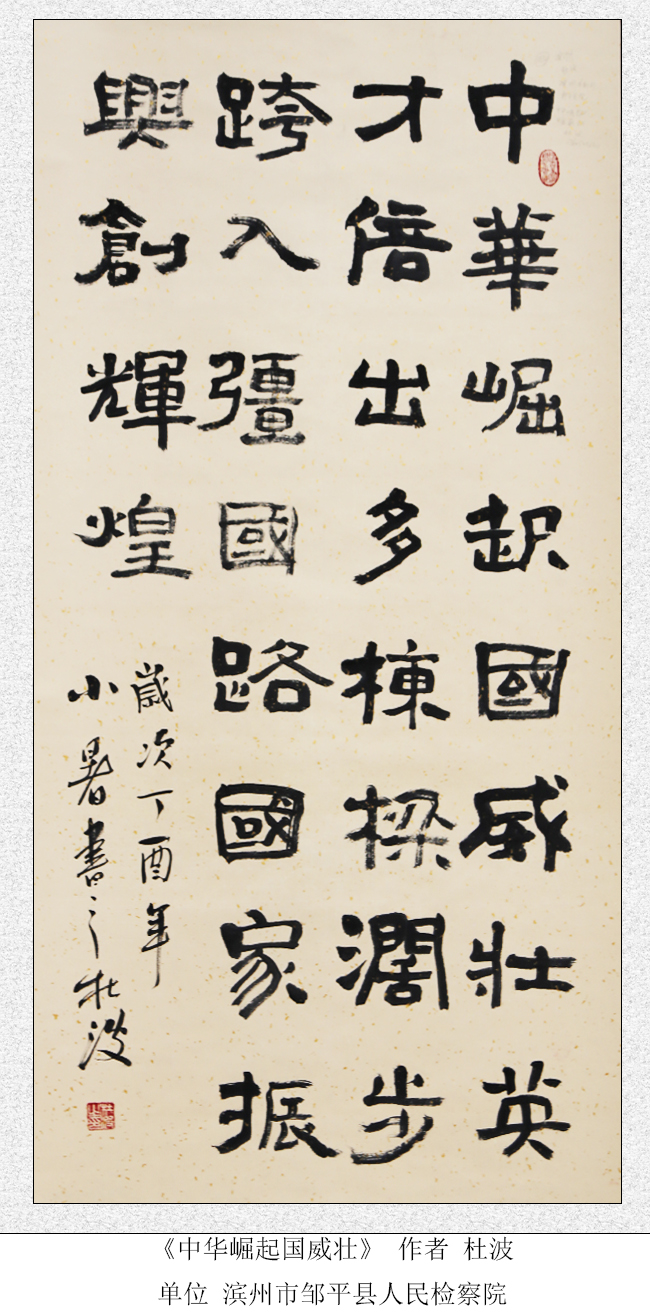 中華崛起國威壯英
才倍出多棟樑濶步
跨入彊國路國家振
興創輝煌
歲次丁酉年
小暑書之杜波
《中华崛起国威壮》 作者 杜波
单位 滨州市邹平县人民检察院